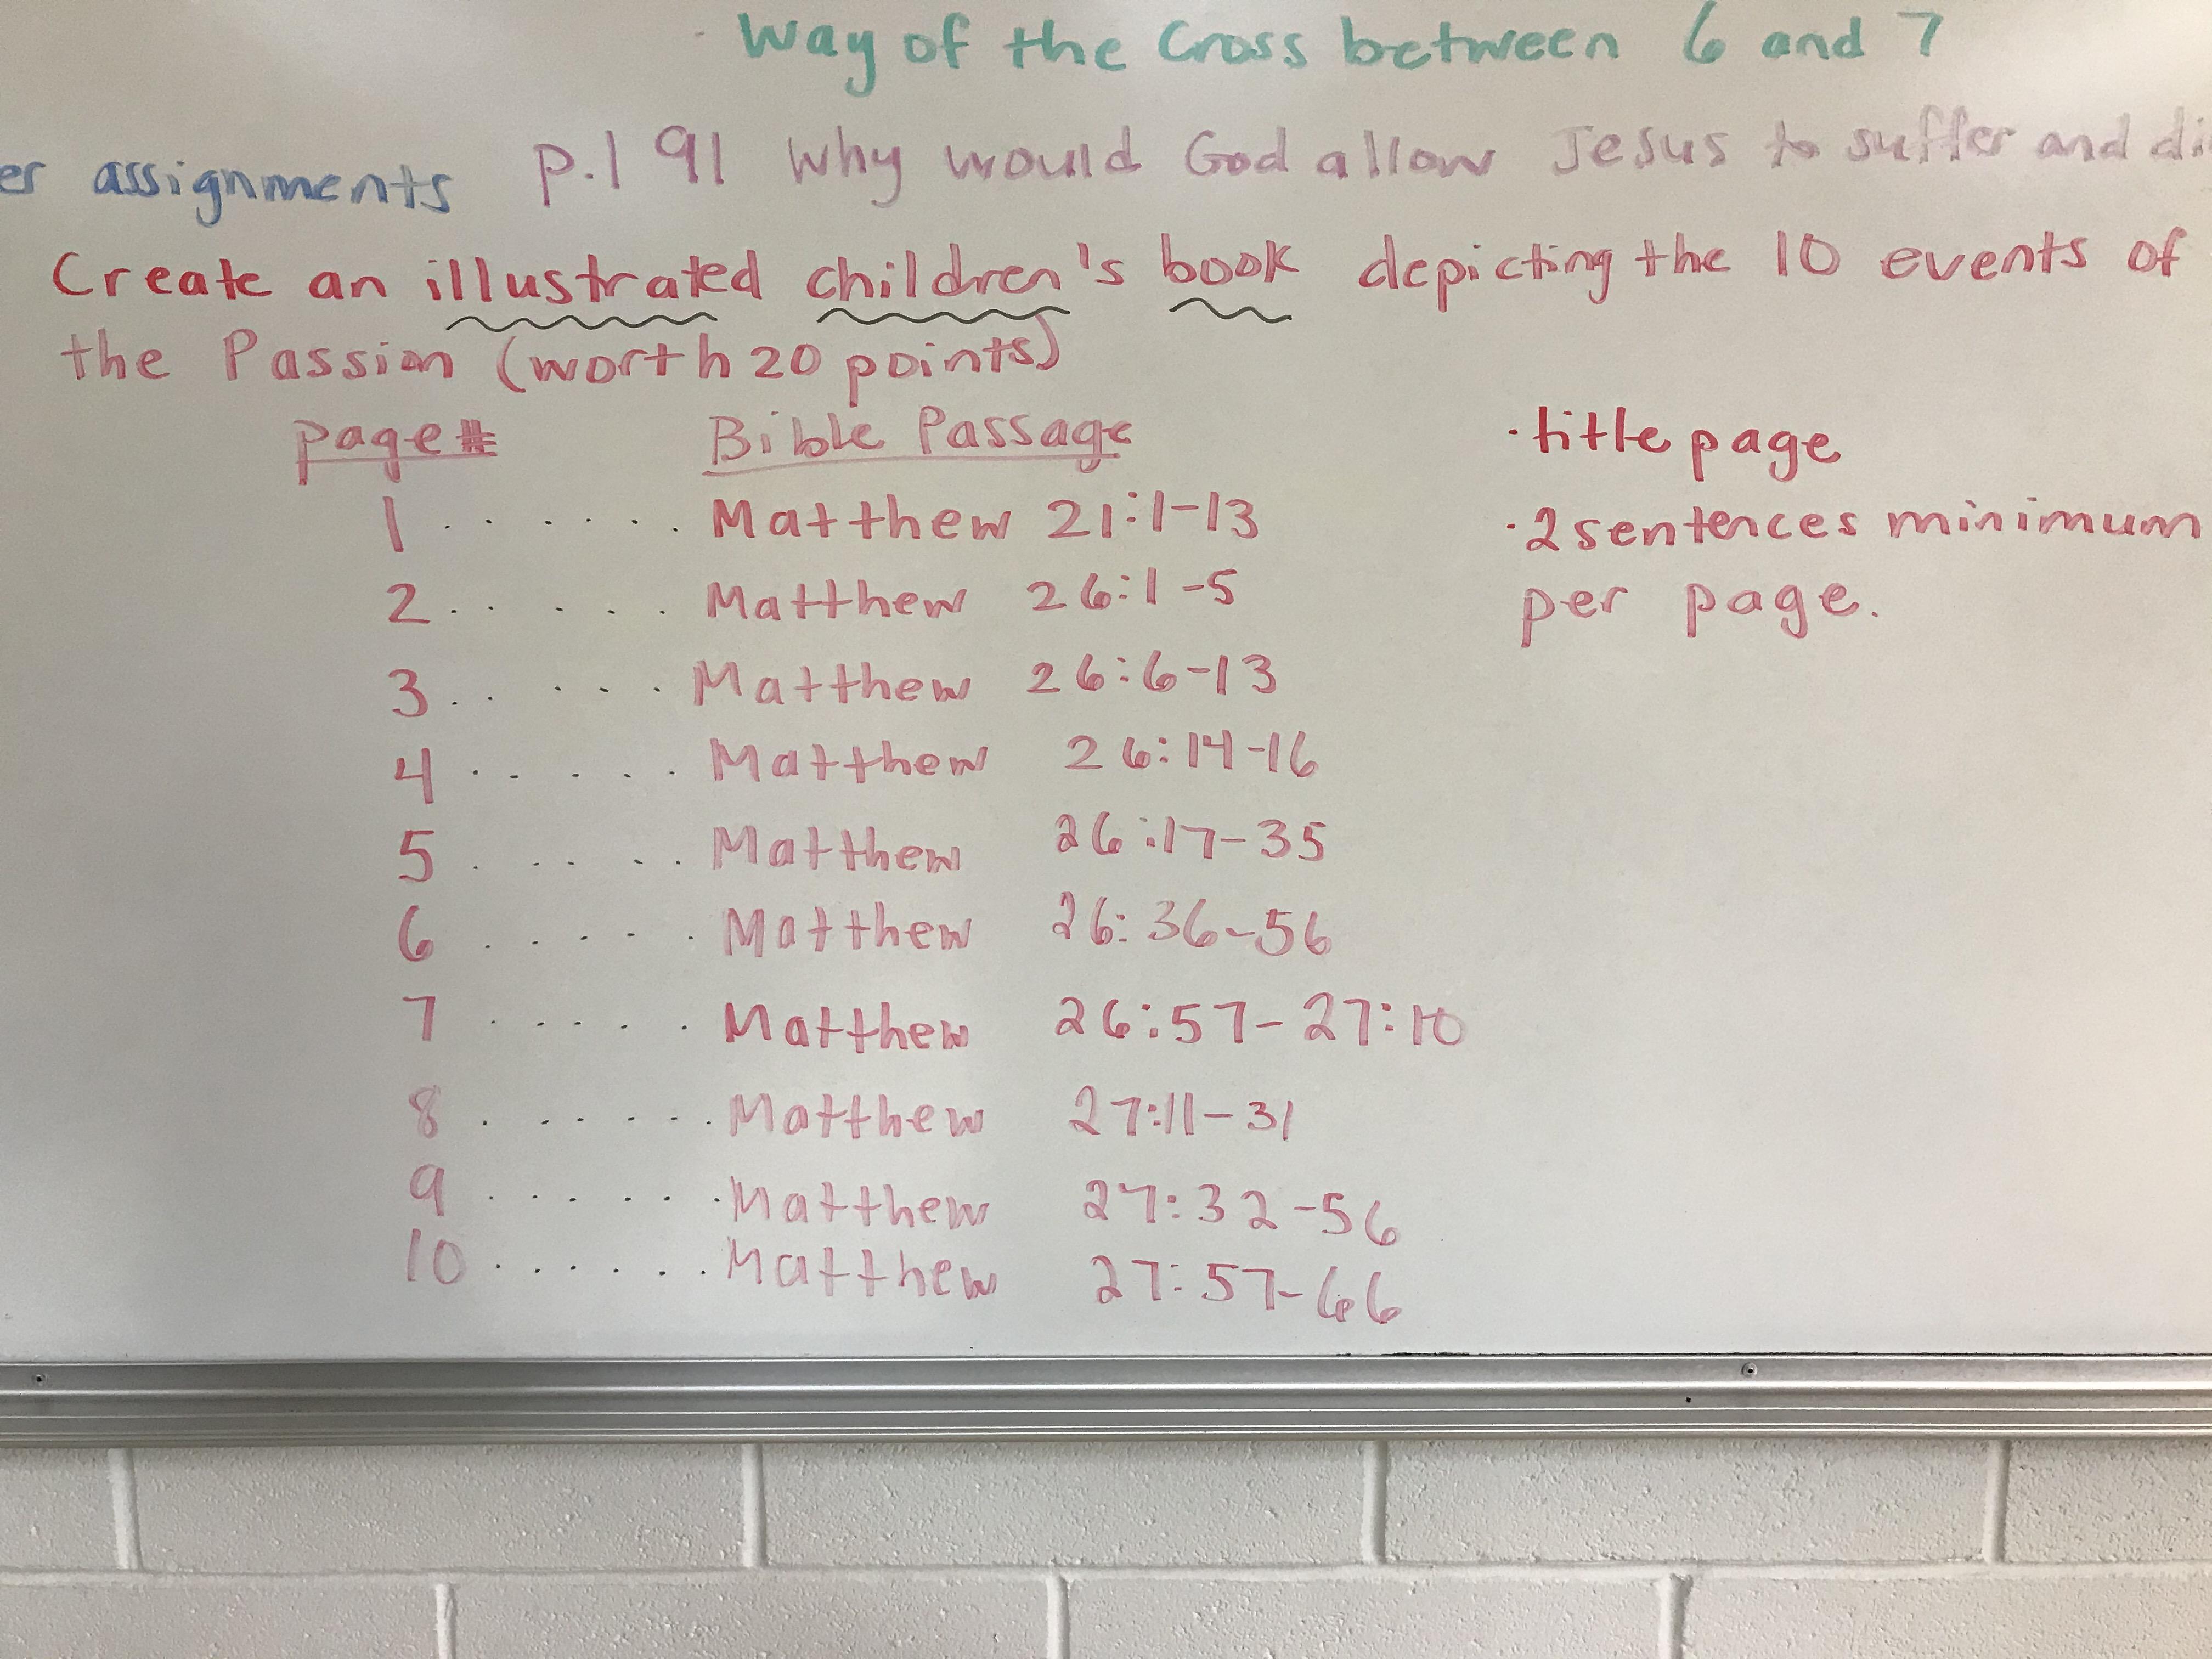 Way of the Cross between 6 and 7
assignments p.191 Why would God allow Jesus to suffer and
Create an illustrated children's book depicting the 10 events of
the Passion (worth 20 points)
page # Bible Passage
1 . . . . . . Matthew 21:1-13
2 . . . . . Matthew 26:1-5
3 . . . . . Matthew 26:6-13
4 . . . . . Matthew 26:14-16
5 . . . . . Matthew 26:17-35
6 . . . . . Matthew 26:36-56
7 . . . . . Matthew 26:57-27:10
8 . . . . . . Matthew 27:11-31
9 . . . . . . Matthew 27:32-56
10 . . . . . . Matthew 27:57-66
· title page
· 2 sentences minimum
per page.